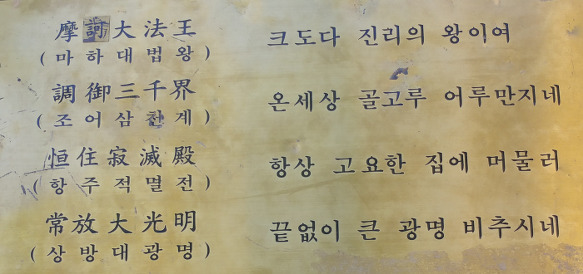 摩訶大法王 크도다 진리의 왕이여
(마하대법왕)
調御三千界 온세상 골고루 어루만지네
(조어삼천계)
恒住寂滅殿 항상 고요한 집에 머물러
(항주적멸전)
常放大光明 끝없이 큰 광명 비추시네
(상방대광명)